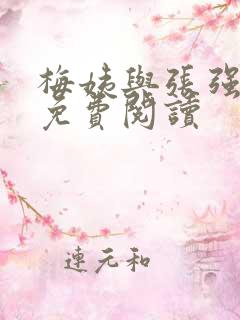 梅姨與张强
免費閱讀
連元和